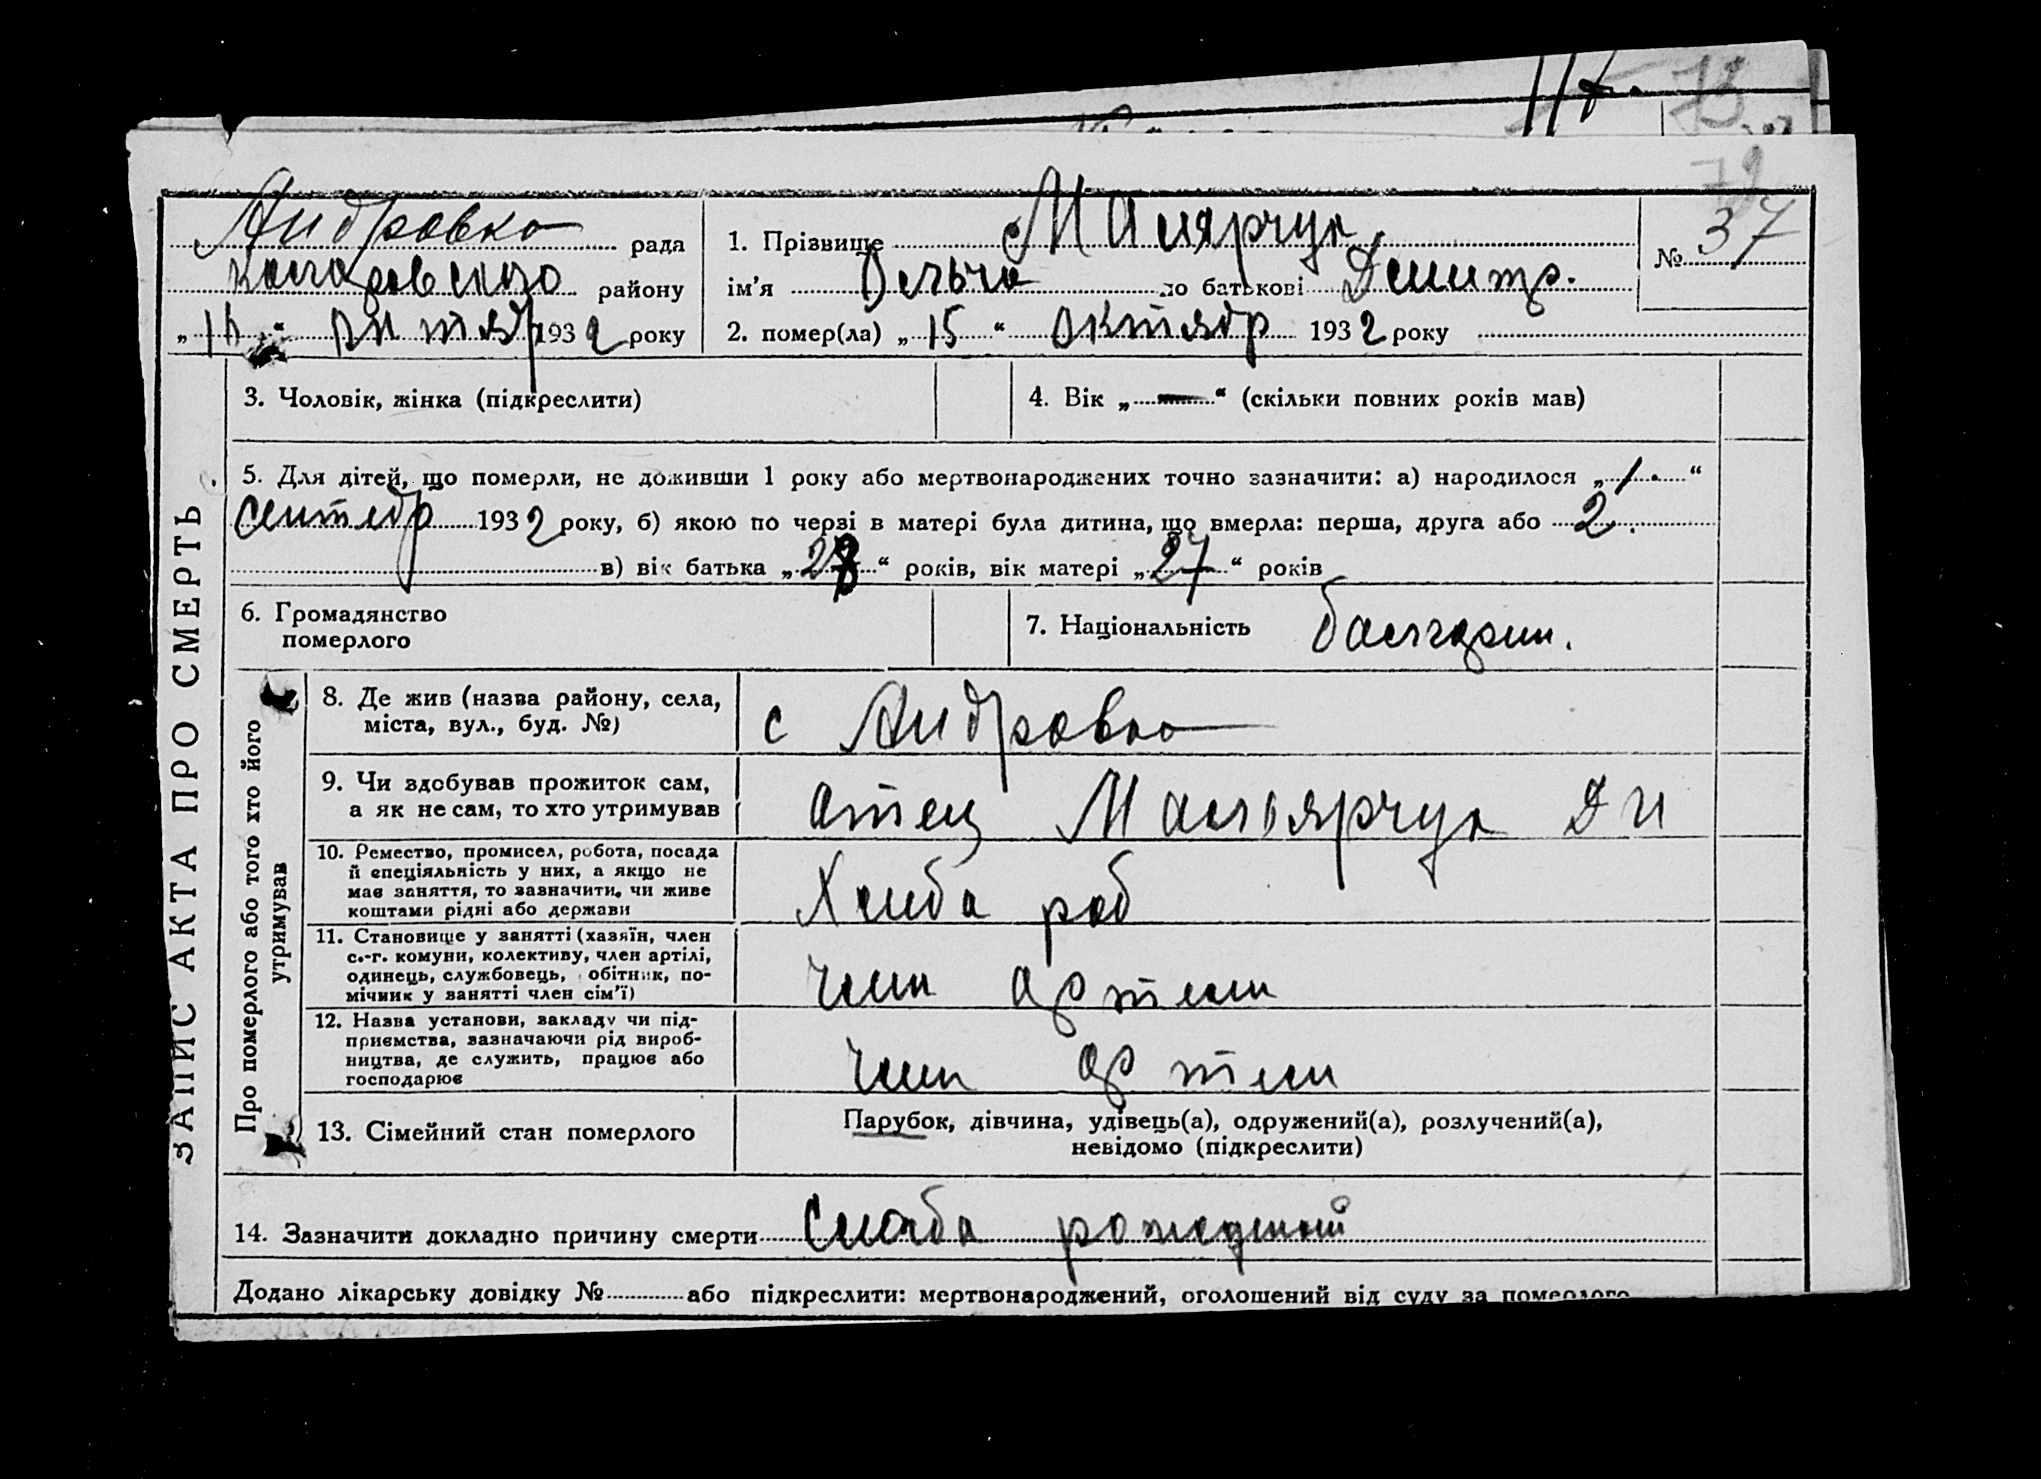 73
79
Андровка рада
района
„ 16 “ октябр 1932 року
1. Прізвище Малярчук
ім'я по батькові Дмитр.
2. помер(ла) „ 15 “ октябр 1932 року
№ 37
ЗАПИС АКТА ПРО СМЕРТЬ
3. Чоловік, жінка (підкреслити)
4. Вік „ — “ (скільки повних років мав)
5. Для дітей, що померли, не доживши 1 року або мертвонароджених точно зазначити: а) народилося „ 1. “
сентябр 1932 року, б) якою по черзі в матері була дитина, що вмерла: перша, друга або 2.
в) вік батька „ 28 “ років, вік матері „ 27 “ років
6. Громадянство
померлого
7. Національність болгарин.
Про померлого або того хто його
утримував
8. Де жив (назва району, села,
міста, вул., буд. №)
с Андровка
9. Чи здобував прожиток сам,
а як не сам, то хто утримував
отец Мальярчук Д И
10. Ремество, промисел, робота, посада
й спеціяльність у них, а якщо не
має заняття, то зазначити, чи живе
коштами рідні або держави
Хлиба роб
11. Становище у занятті (хазяїн, член
с.-г. комуни, колективу, член артілі,
одинець, службовець, обітник, по-
мічник у занятті член сім'ї)
член артели
12. Назва установи, закладу чи під-
приємства, зазначаючи рід вироб-
ництва, де служить, працює або
господарює
член артели
13. Сімейний стан померлого
Парубок, дівчина, удівець(а), одружений(а), розлучений(а),
невідомо (підкреслити)
14. Зазначити докладно причину смерти Слаба рожденый
Додано лікарську довідку № або підкреслити: мертвонароджений, оголошений від суду за померлого